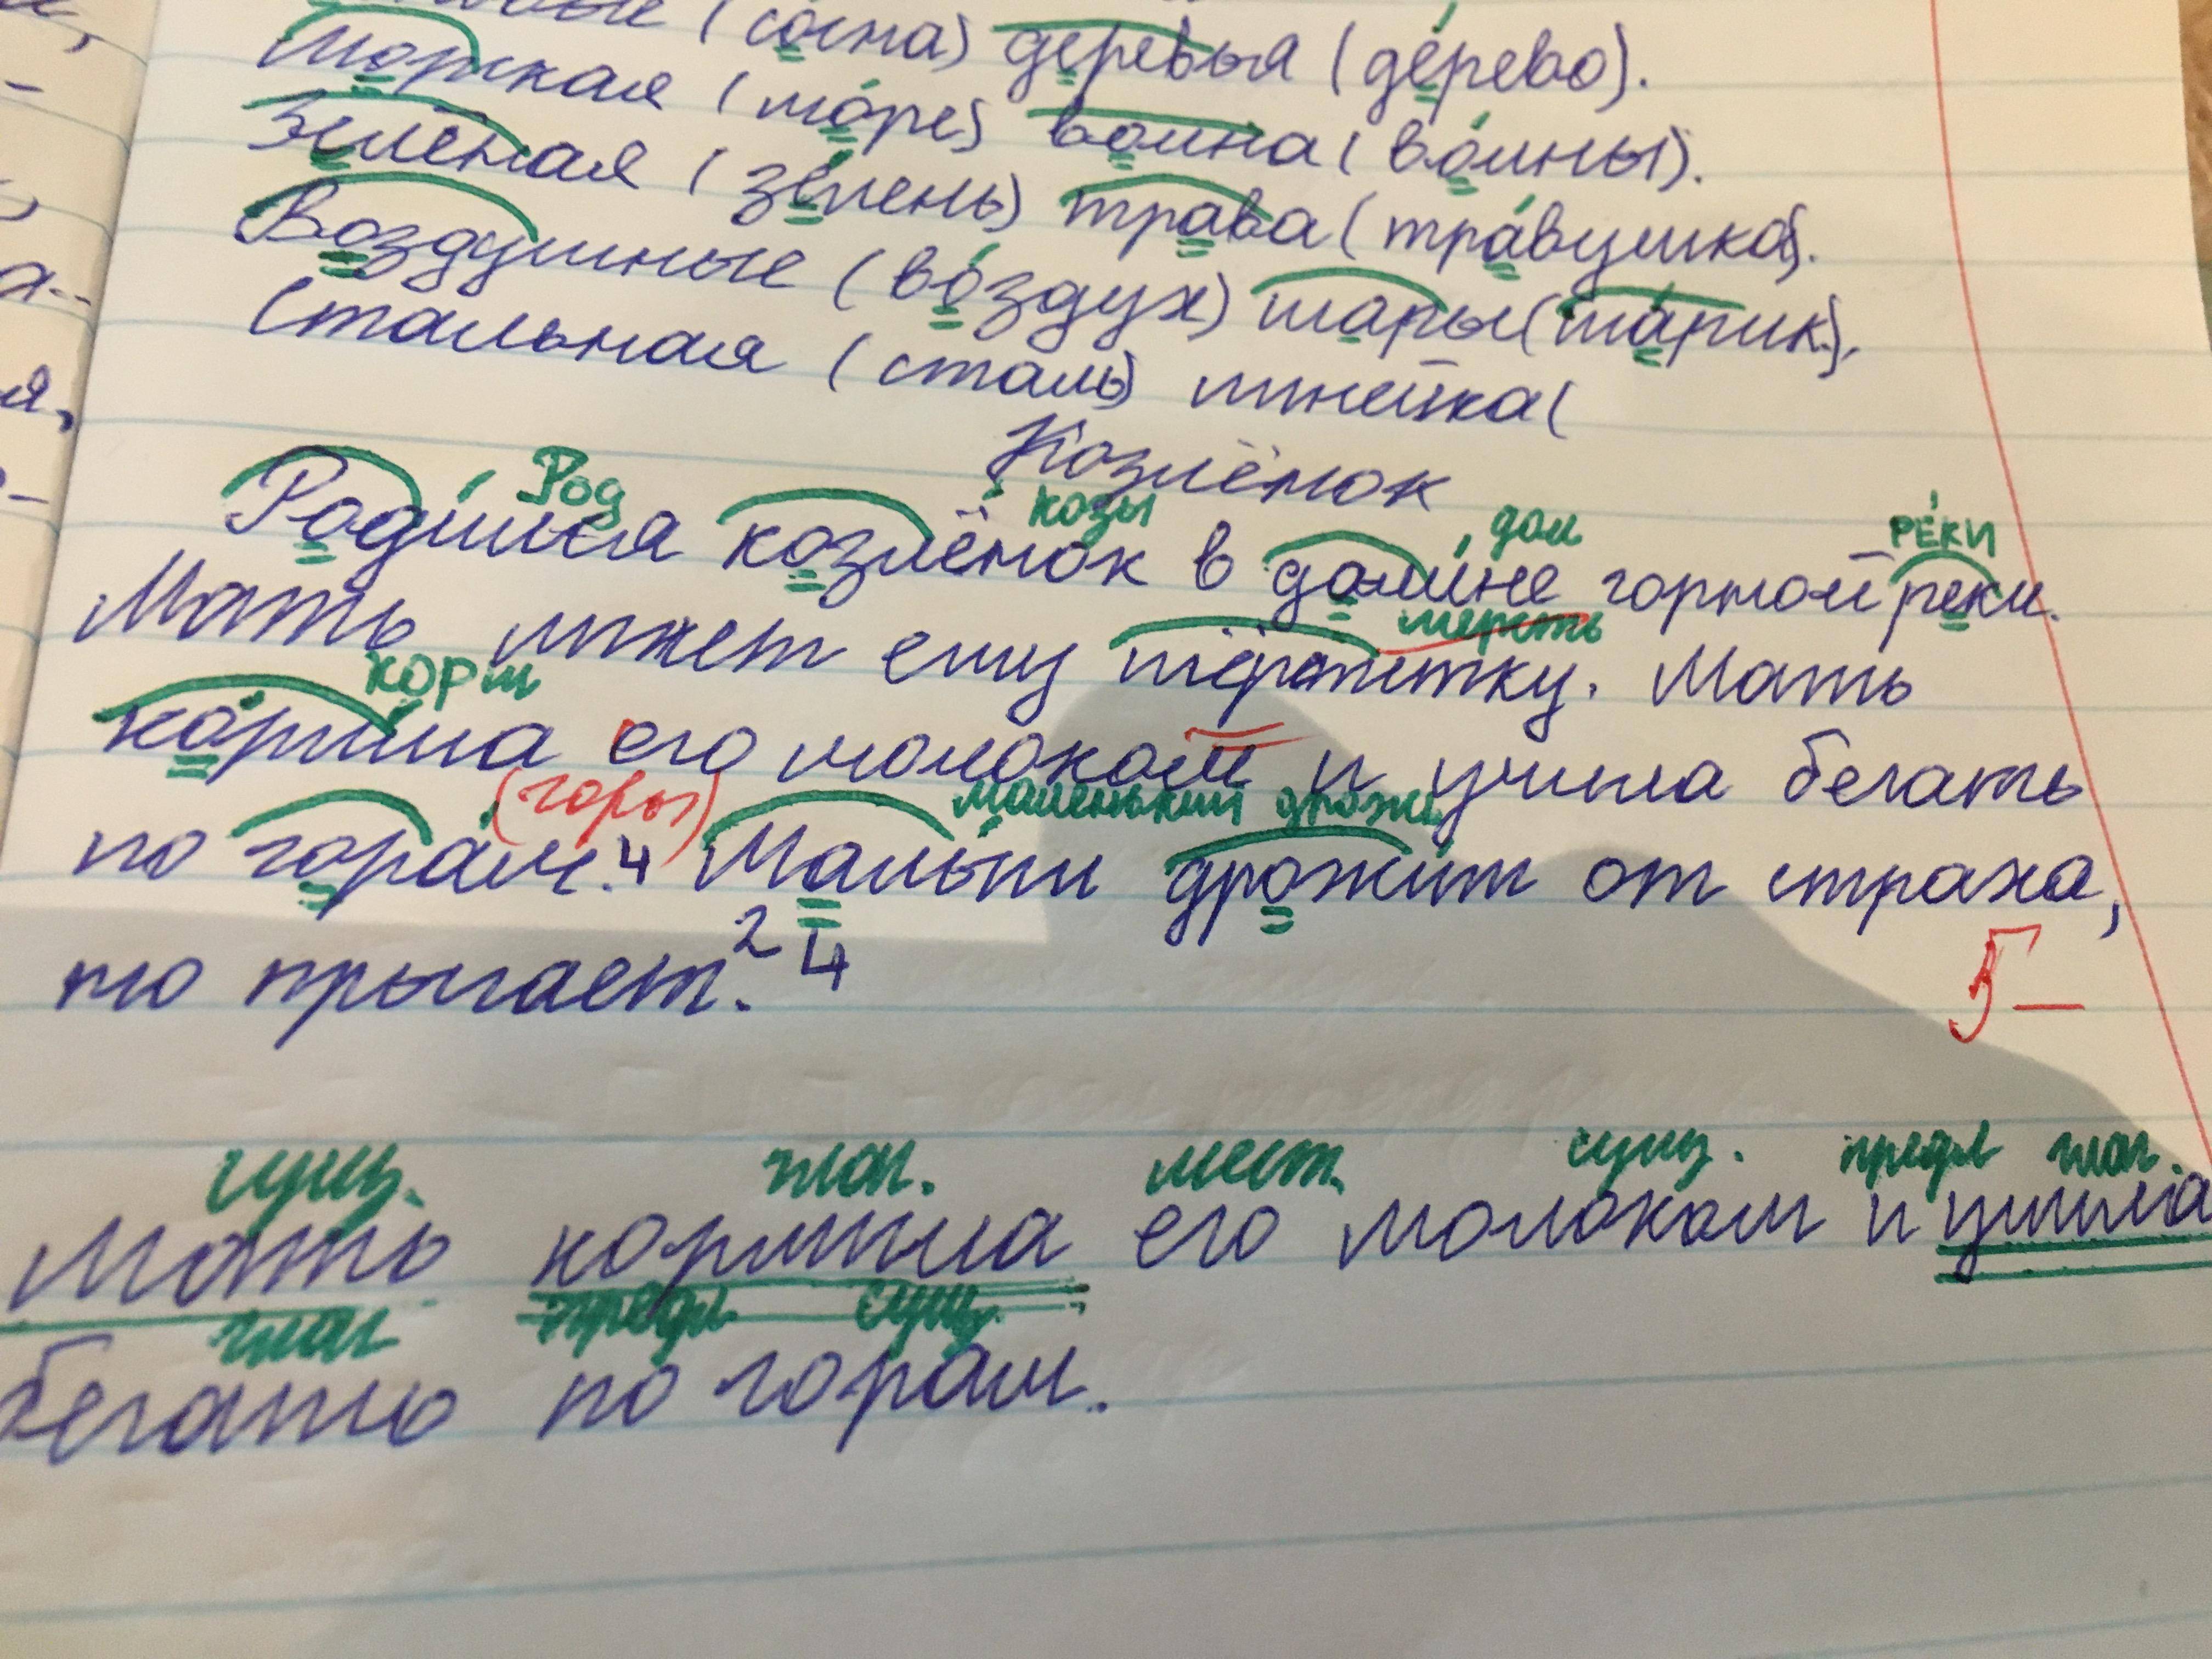 (сосна) деревья (дерево).
Морская (море) волна (волны).
Зелёная (зелень) трава (травушка).
Воздушные (воздух) шары (шарик).
Стальная (сталь) линейка (
Козлёнок
Род козы дол РЕКИ
Родился козлёнок в долине горной реки.
шерсть
Мать лижет ему шёрстку. Мать
корм
кормила его молоком и учила бегать
(горы) маленький дрожь
по горам.4 Малыш дрожит от страха,
но прыгает.2 4
5-
сущ. глаг. мест. сущ. предл глаг.
Мать кормила его молоком и учила
глаг предл сущ.
бегать по горам.